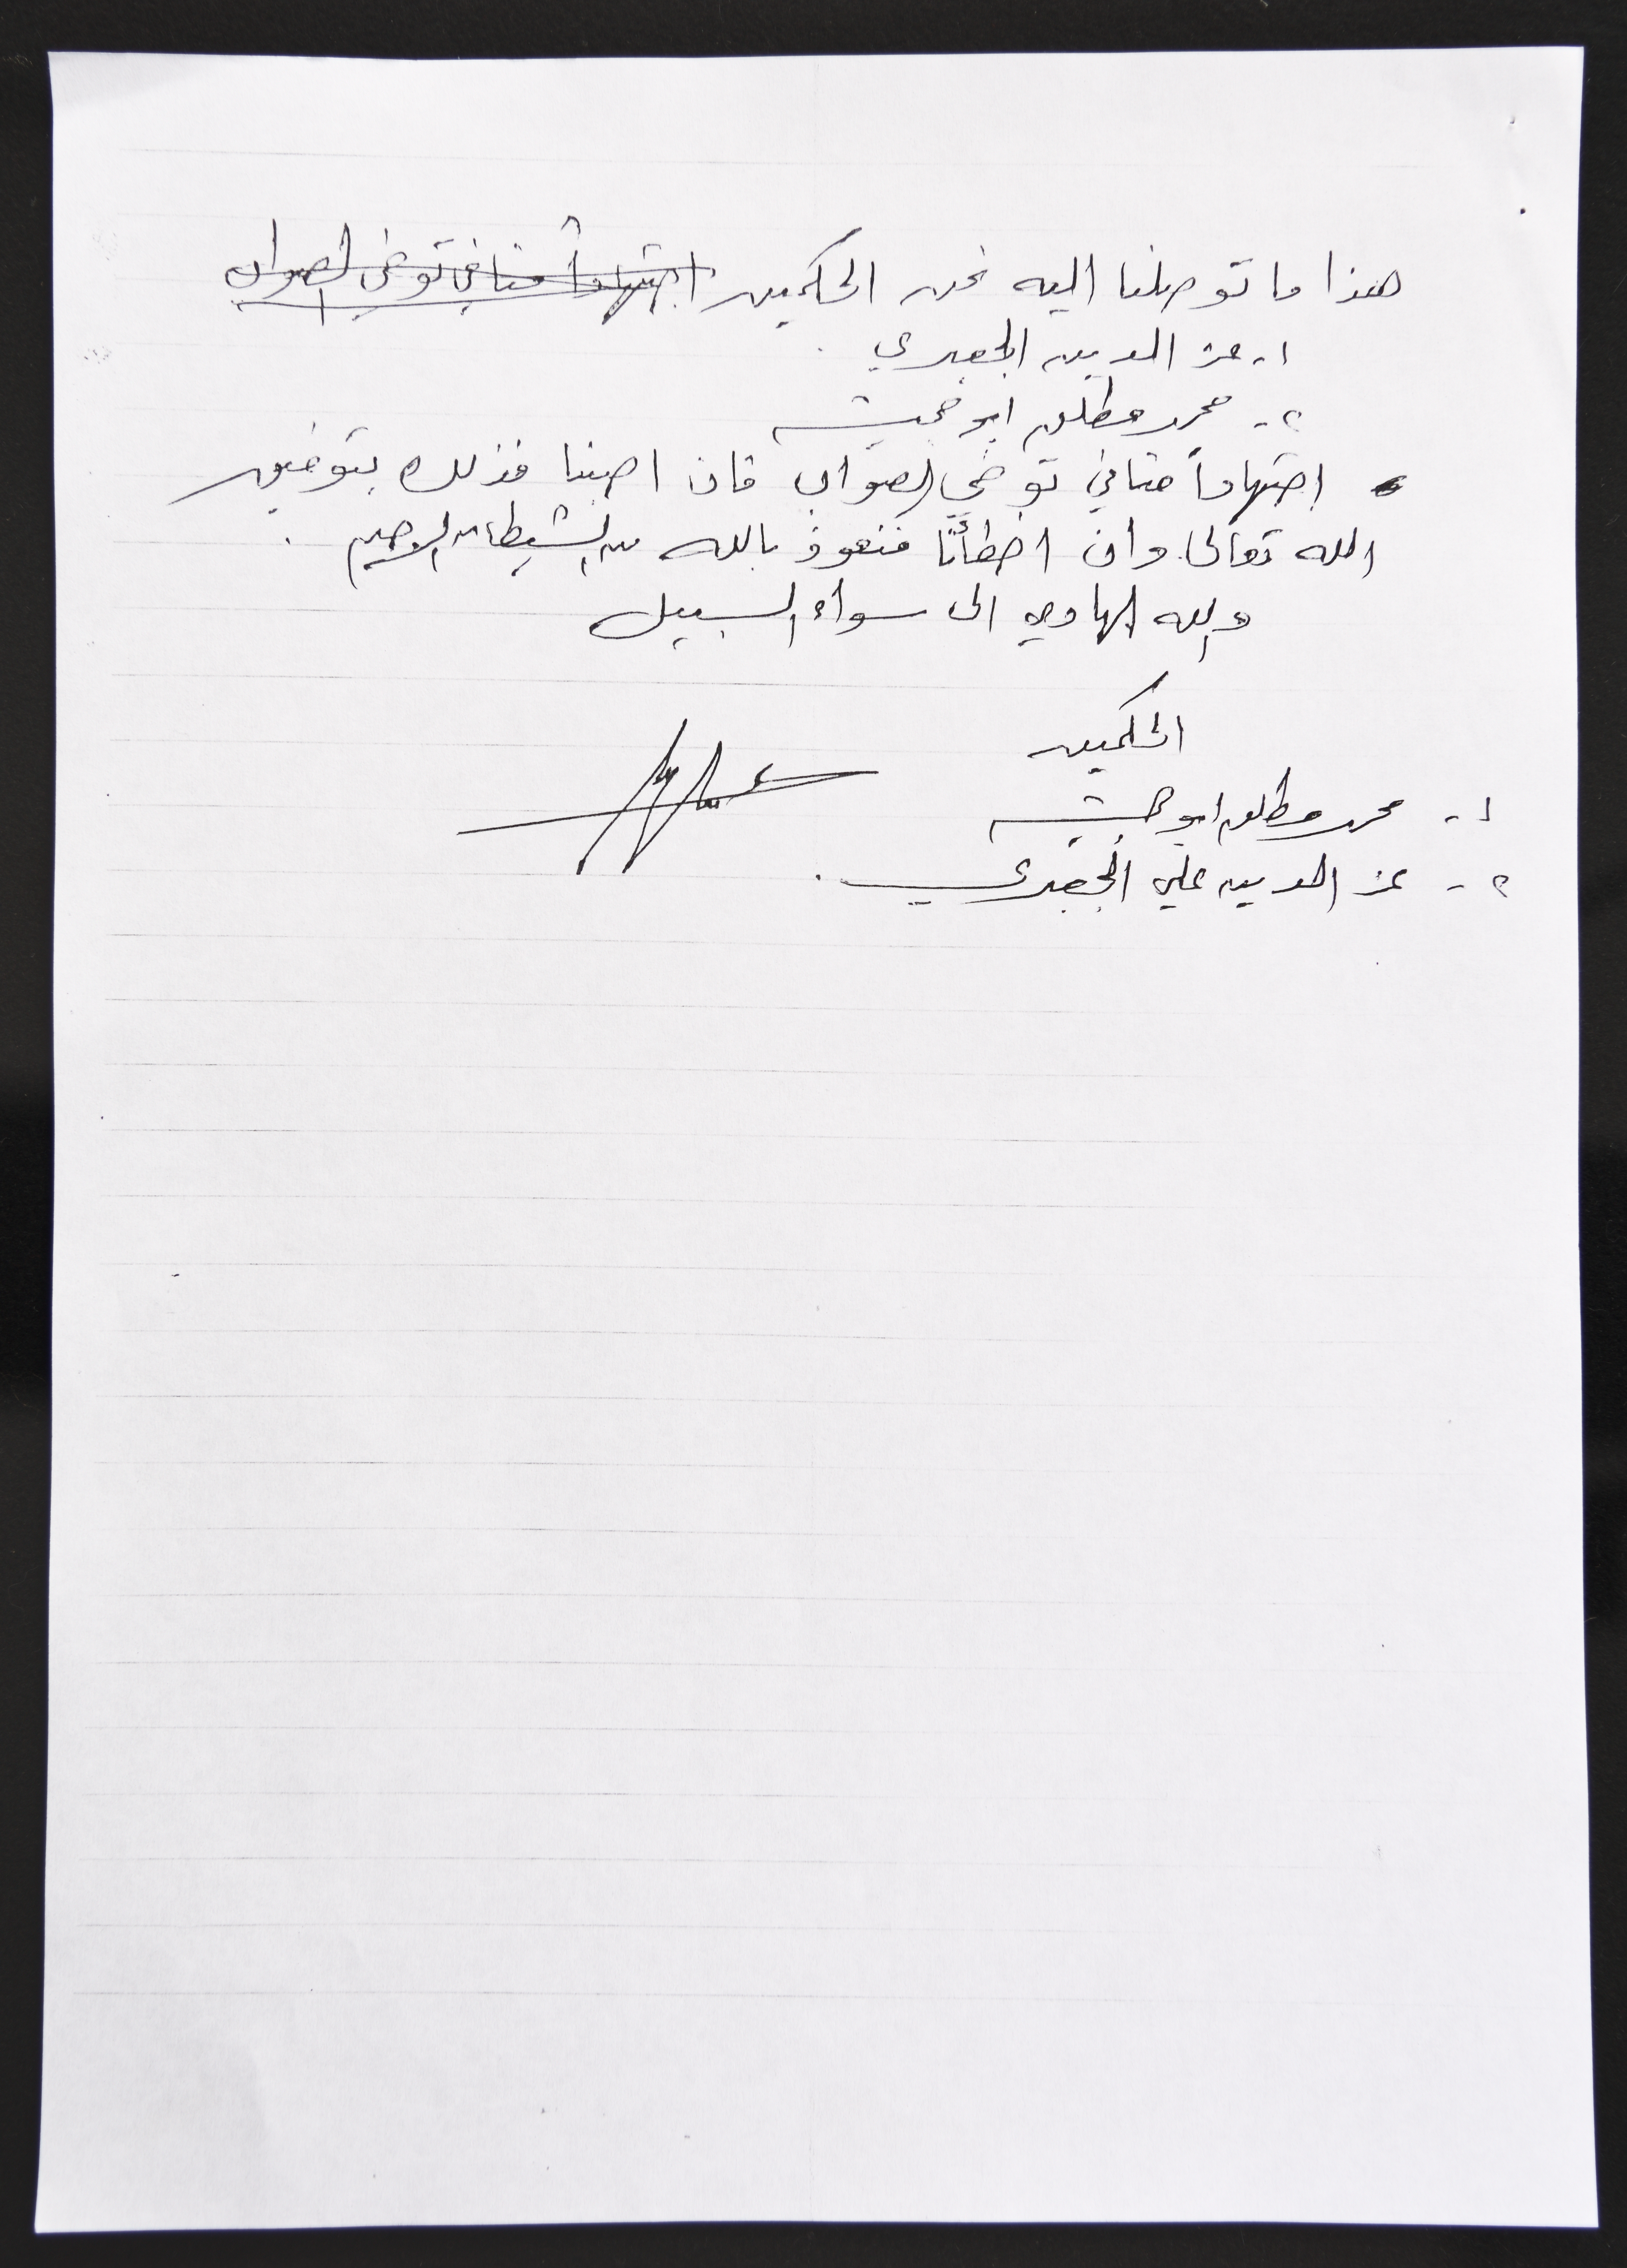 هذا ما توصلنا اليه نحن الحكمين اجتهاداً منا في توخي الصواب
١- عز الدين الجعبري .
٢- محمد مطلق ابو
اجتهاداً منا في توخي الصواب فان اصبنا فذلك بتوفيق
الله تعالى وان اخطأنا فنعوذ بالله من الشيطان الرجيم .
والله الهادي الى سواء السبيل
الحكمين
١- محمد مطلق ابو
٢- عز الدين علي الجعبري .